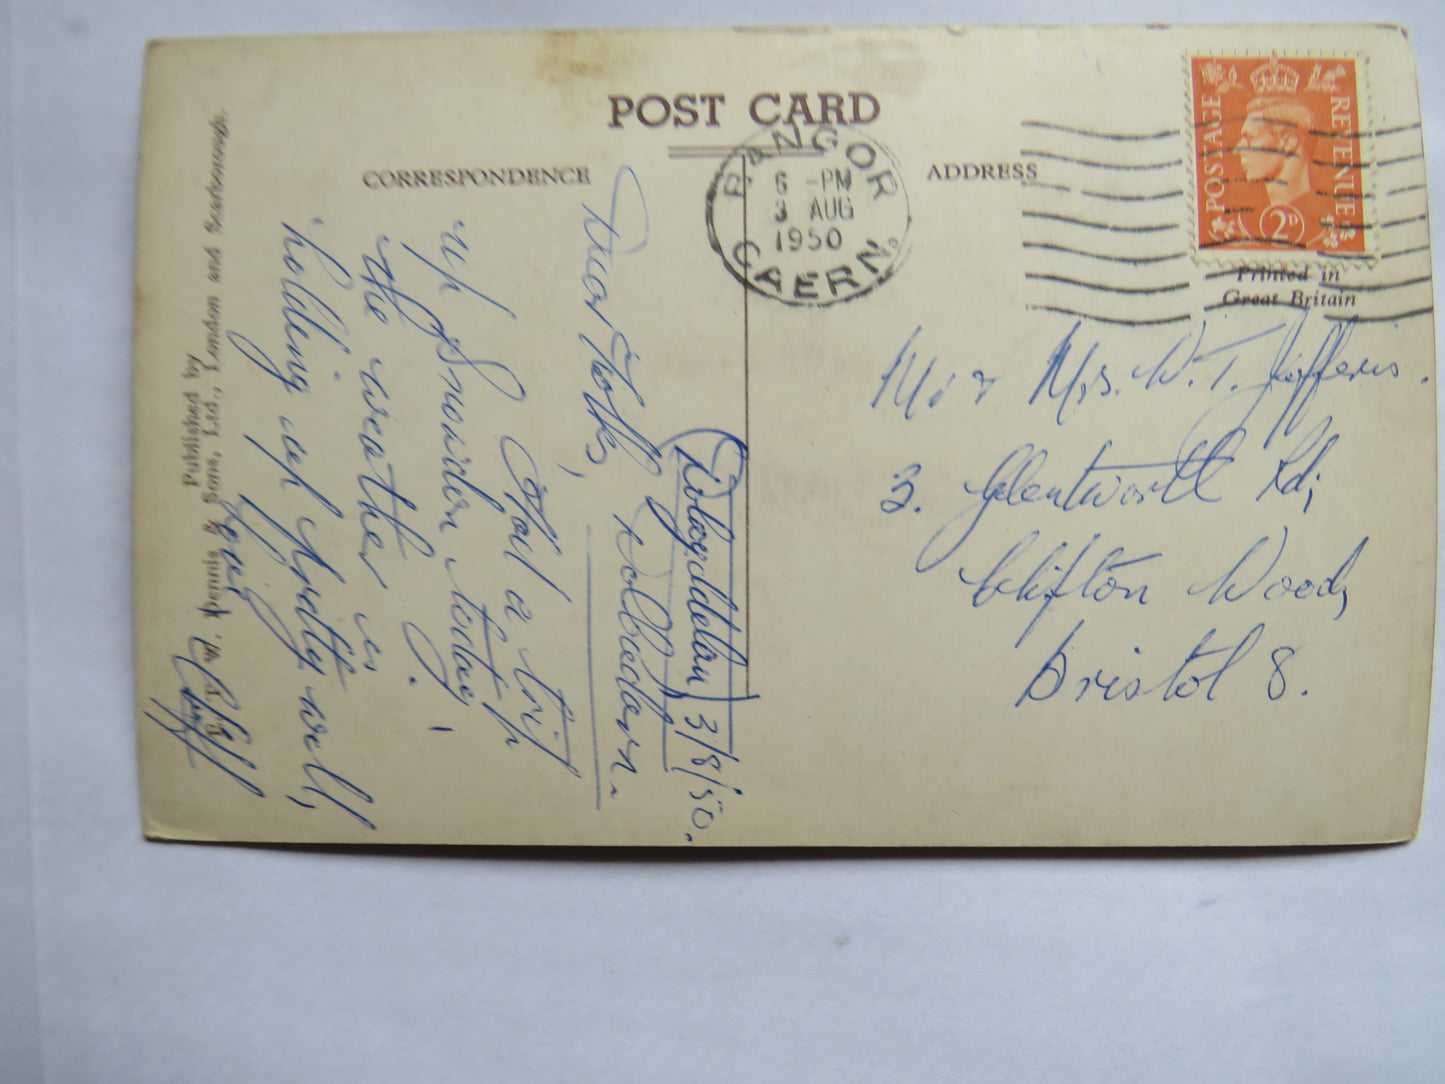 POST CARD
CORRESPONDENCE
ADDRESS
BANGOR
6 - PM
3 AUG
1950
CAERN.
POSTAGE
REVENUE
2D
Printed in
Great Britain
Mr & Mrs. W. T. Jefferis.
3. Glentworth Rd;
Clifton Wood,
Bristol 8.
Dolwyddelan 3/8/50.
Dolbadarn.
Dear Folks,
Had a trip
up Snowden today,
the weather is
holding up pretty well,
Published by
Dennis & Sons, Ltd., London and Scarborough.